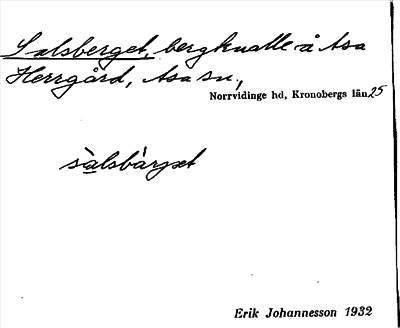 Salsberget, bergknalle å Asa
Herrgård, Asa sn,
Norrvidinge hd, Kronobergs län 25
sàlsbàrgət
Erik Johannesson 1932